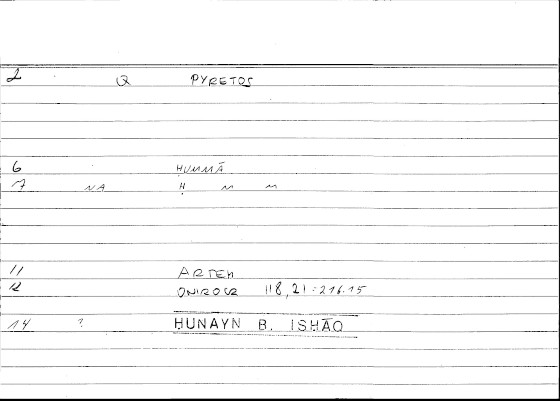 2 Q PYRETOS
6 ḤUMMĀ
7 NA Ḥ M M
11 ARTEM
12 ONIROCR 118,21:216.15
14 ? HUNAYN B. ISHĀQ